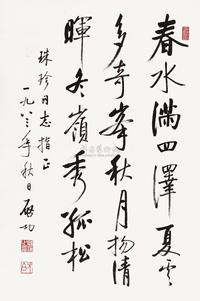 春水满四泽夏云
多奇峯秋月扬清
晖冬嶺秀孤松
珠珍同志指正
一九八三年秋日启功